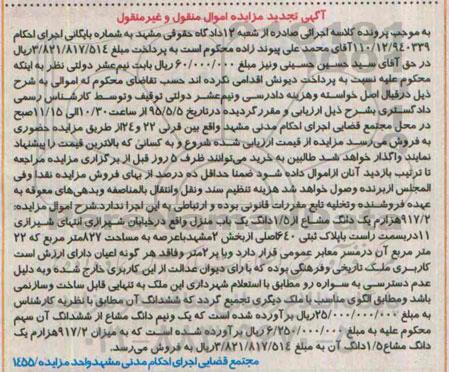 آگهی تجدید مزایده اموال منقول و غیرمنقول
به موجب پرونده کلاسه اجرائی صادره از شعبه ۱۲دادگاه حقوقی مشهد به شماره بایگانی اجرای احکام
۱۱۰/۱۲/۹۴۰۳۳۹آقای محمد علی پیوند زاده محکوم است به پرداخت مبلغ ۳/۸۲۱/۸۱۷/۵۱۴ریال
در حق آقای سید حسین حسینی ونیز مبلغ ۶۰/۰۰۰/۰۰۰ریال بابت نیم‌عشر دولتی نظر به اینکه
محکوم علیه نسبت به پرداخت دیونش اقدامی نکرده اند حسب تقاضای محکوم له اموالی به شرح
ذیل درقبال اصل خواسته وهزینه دادرسی ونیم‌عشر دولتی توقیف وتوسط کارشناس رسمی
دادگستری بشرح ذیل ارزیابی و مقررگردیده درتاریخ ۹۵/۵/۵از ساعت۱۰/۳۰الی ۱۱/۱۵صبح
در محل مجتمع قضایی اجرای احکام مدنی مشهد واقع بین قرنی ۲۲ و۲۴از طریق مزایده حضوری
به فروش می‌رسد مزایده از قیمت ارزیابی شده شروع و به کسانی که بالاترین قیمت را پیشنهاد
نمایند واگذار خواهد شد طالبین به خرید می‌توانند ظرف ۵ روز قبل از برگزاری مزایده مراجعه
تا ترتیب بازدید آنان ازاموال داده شود ضمنا حداقل ده درصد از بهای فروش مزایده نقدا وفی
المجلس ازبرنده وصول خواهد شد هزینه تنظیم سند ونقل وانتقال بالمناصفه وبدهی‌های معوقه به
عهده فروشنده وتخلیه تابع مقررات قانونی بوده و ارتباطی به این اجرا ندارد.شرح اموال مزایده:
۹۱۷/۲هزارم یک دانگ مشاع از۱/۵دانگ یک باب منزل واقع درخیابان شیرازی انتهای شیرازی
۱۱دربسمت راست باپلاک ثبتی ۶۴۰اصلی ازبخش ۲مشهدباعرصه به مساحت ۸۲۷متر مربع که ۲۲
متر مربع آن درمسر معابر عمومی قرار دارد وبا پر۲متر وفاقد هر گونه اعیان دارای ارزش است
کاربری ملک تاریخی وفرهنگی بوده که با رای دیوان عدالت از این کاربری خارج شده وبه دلیل
عدم دسترسی به سواره رو مطابق با استعلام شهرداری این ملک به تنهایی قابل ساخت وسازنمی
باشد ومطابق الگوی مناسب با ملک دیگری تجمیع گردد که ششدانگ آن مطابق با نظریه کارشناس
به مبلغ ۲۵/۰۰۰/۰۰۰/۰۰۰ریال برآورده شده است که یک ونیم دانگ مشاع از ششدانگ آن سهم
محکوم علیه به مبلغ ۶/۲۵۰/۰۰۰/۰۰۰ریال برآورده شده است که به میزان ۹۱۷/۲هزارم یک
دانگ مشاع۱/۵دانگ آن به مبلغ ۳/۸۲۱/۸۱۷/۵۱۴ریال به فروش می‌رسد.
مجتمع قضایی اجرای احکام مدنی مشهدواحد مزایده /۱۴۵۵